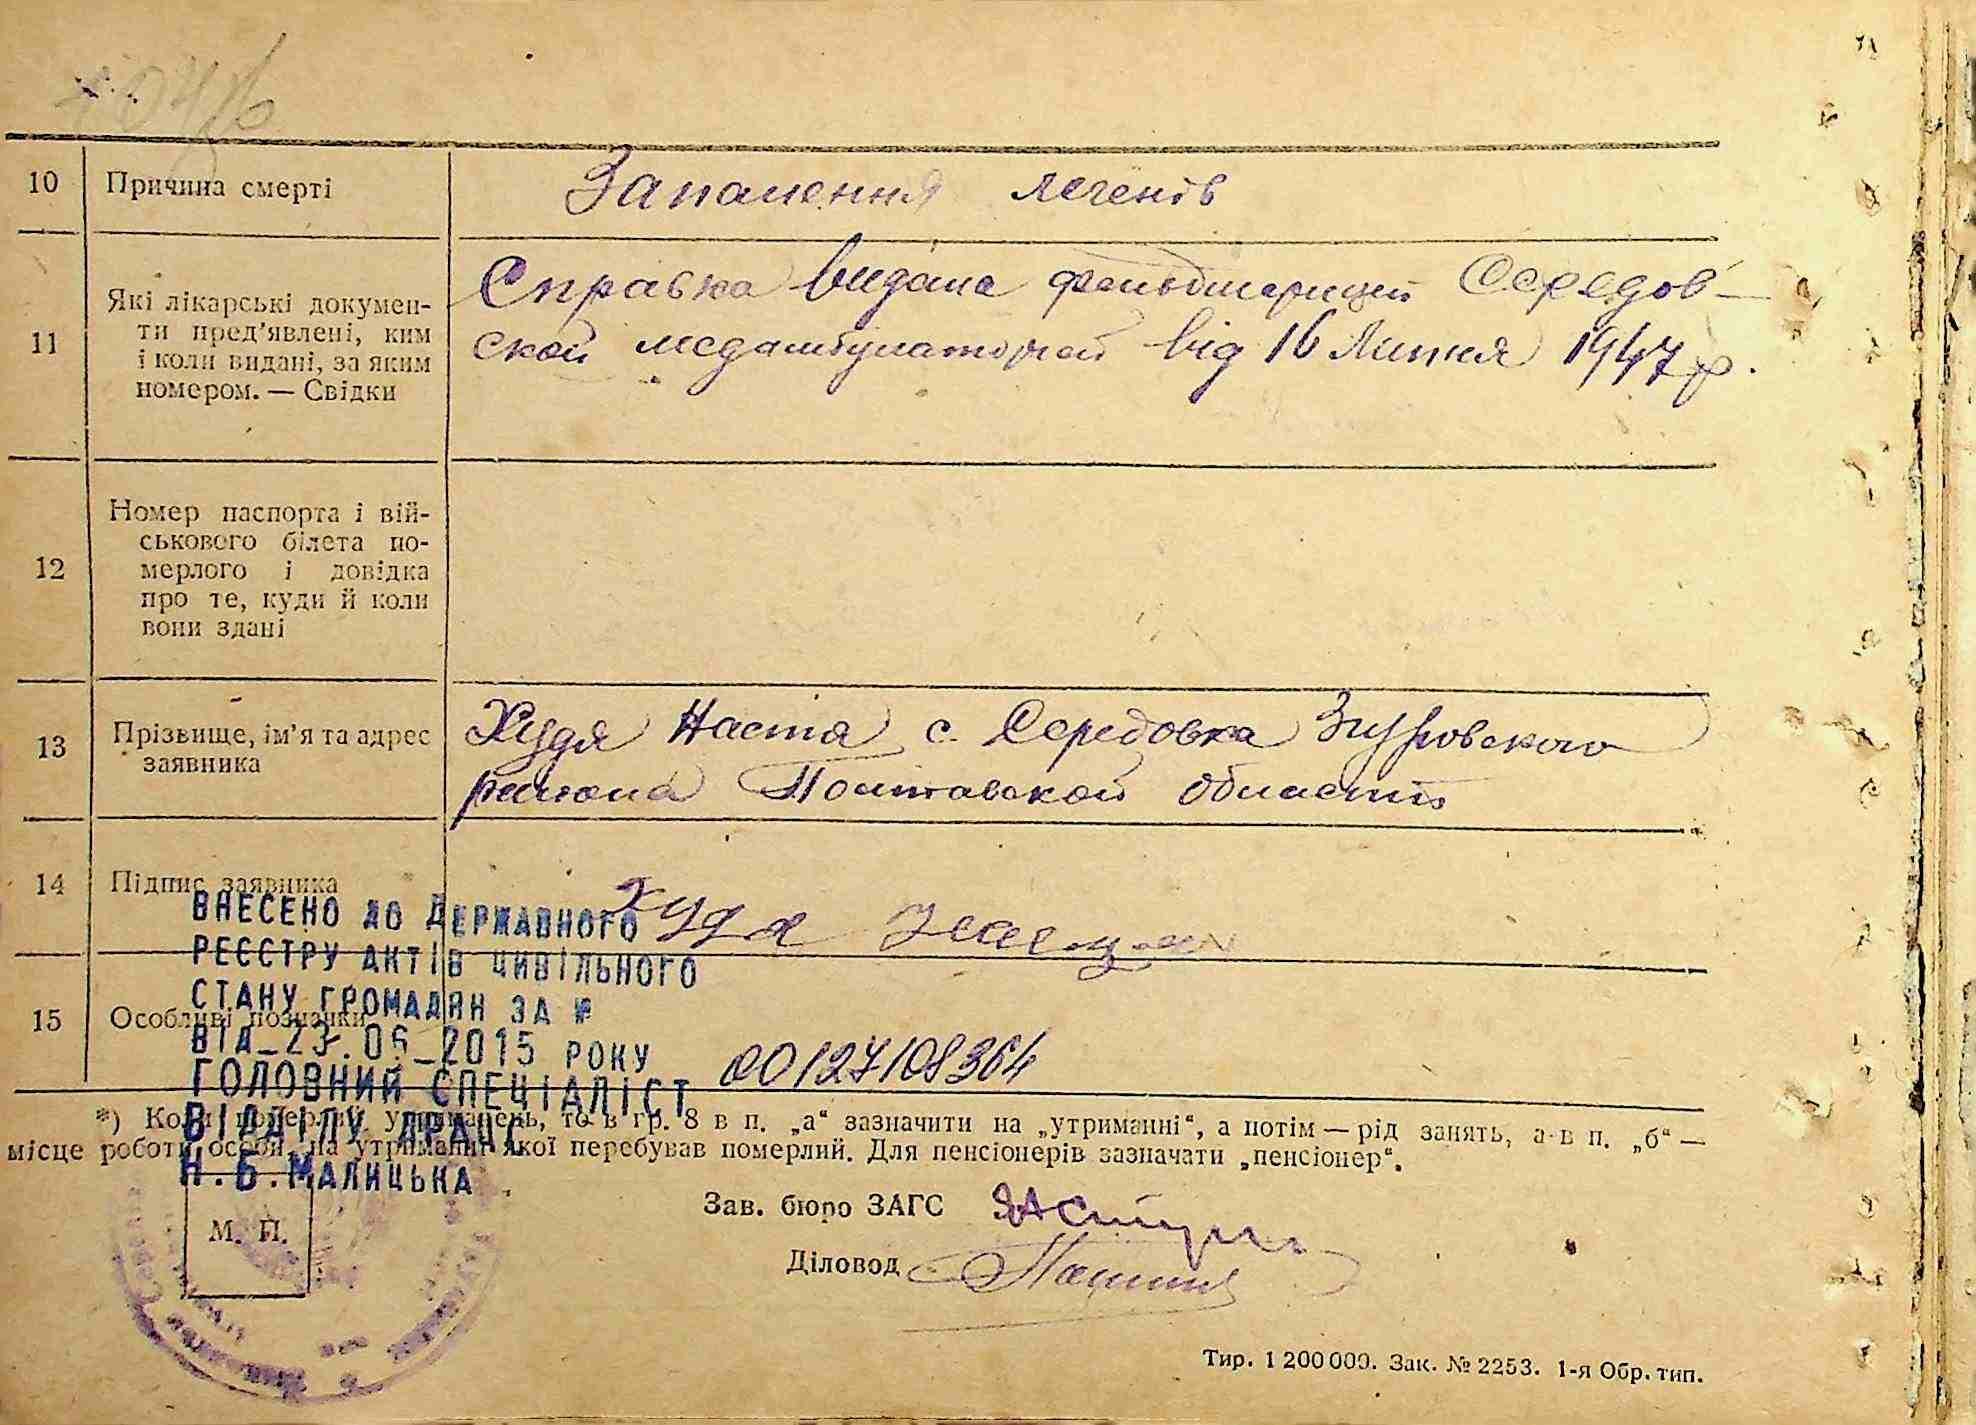 10 Причина смерті Запалення легенів
11 Які лікарські докумен-
ти пред'явлені, ким
і коли видані, за яким
номером. — Свідки
Справка видана фельдшерицей Середов-
ской медамбулаторией від 16 Липня 1947 р.
12 Номер паспорта і вій-
ськового білета по-
мерлого і довідка
про те, куди й коли
вони здані
13 Прізвище, ім'я та адрес
заявника
Худя Настя с. Середовка Згуровского
района Полтавской области
14 Підпис заявника Худя
15 Особливі позначки
ВНЕСЕНО ДО ДЕРЖАВНОГО
РЕЄСТРУ АКТІВ ЦИВІЛЬНОГО
СТАНУ ГРОМАДЯН ЗА №
ВІД_23.06_2015 РОКУ 00127108364
ГОЛОВНИЙ СПЕЦІАЛІСТ
ВІДДІЛУ ДРАЦС
Н.Б.МАЛИЦЬКА
*) Коли померлий утриманець, то в гр. 8 в п. „а“ зазначити на „утриманні“, а потім — рід занять, а в п. „б“ —
місце роботи особи, на утриманні якої перебував померлий. Для пенсіонерів зазначати „пенсіонер“.
М. П.
Зав. бюро ЗАГС
Діловод
Тир. 1 200 000. Зак. № 2253. 1-я Обр. тип.